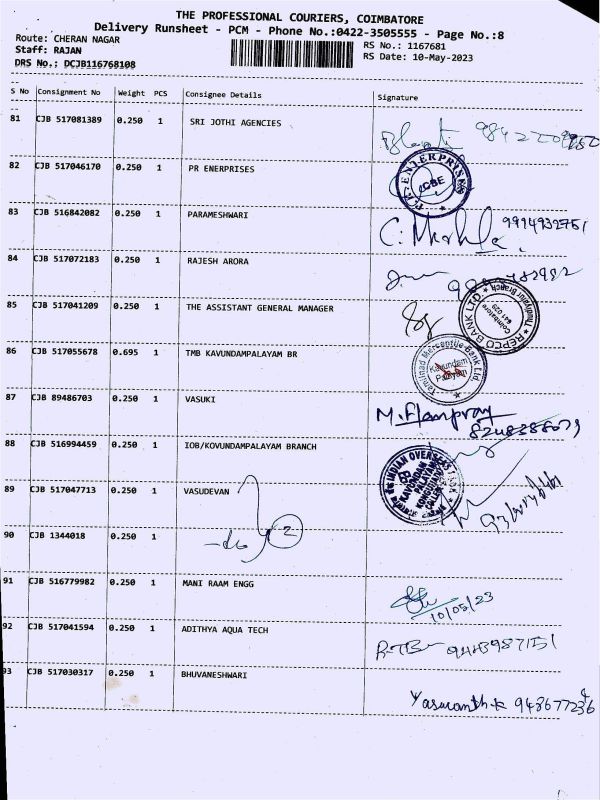 THE PROFESSIONAL COURIERS, COIMBATORE
Delivery Runsheet - PCM - Phone No.:0422-3505555 - Page No.:8
Route: CHERAN NAGAR
RS No.: 1167681
Staff: RAJAN
RS Date: 10-May-2023
DRS No.: DCJB116768108
S No Consignment No Weight PCS Consignee Details Signature
81 CJB 517081389 0.250 1 SRI JOTHI AGENCIES
82 CJB 517046170 0.250 1 PR ENERPRISES
P.R. ENTERPRISES CBE
83 CJB 516842082 0.250 1 PARAMESHWARI
9994932751
84 CJB 517072183 0.250 1 RAJESH ARORA
85 CJB 517041209 0.250 1 THE ASSISTANT GENERAL MANAGER
REPCO BANK LTD Thudiyalur Branch Coimbatore 641 029
86 CJB 517055678 0.695 1 TMB KAVUNDAMPALAYAM BR
Tamilnad Mercantile Bank Ltd. Kavundam Palayam
87 CJB 89486703 0.250 1 VASUKI
8248388079
88 CJB 516994459 0.250 1 IOB/KOVUNDAMPALAYAM BRANCH
INDIAN OVERSEAS BANK KAVUNDAM PALAYAM
89 CJB 517047713 0.250 1 VASUDEVAN
90 CJB 1344018 0.250 1
-do 2
91 CJB 516779982 0.250 1 MANI RAAM ENGG
10/05/23
92 CJB 517041594 0.250 1 ADITHYA AQUA TECH
9443987151
93 CJB 517030317 0.250 1 BHUVANESHWARI
Yaswanth.k